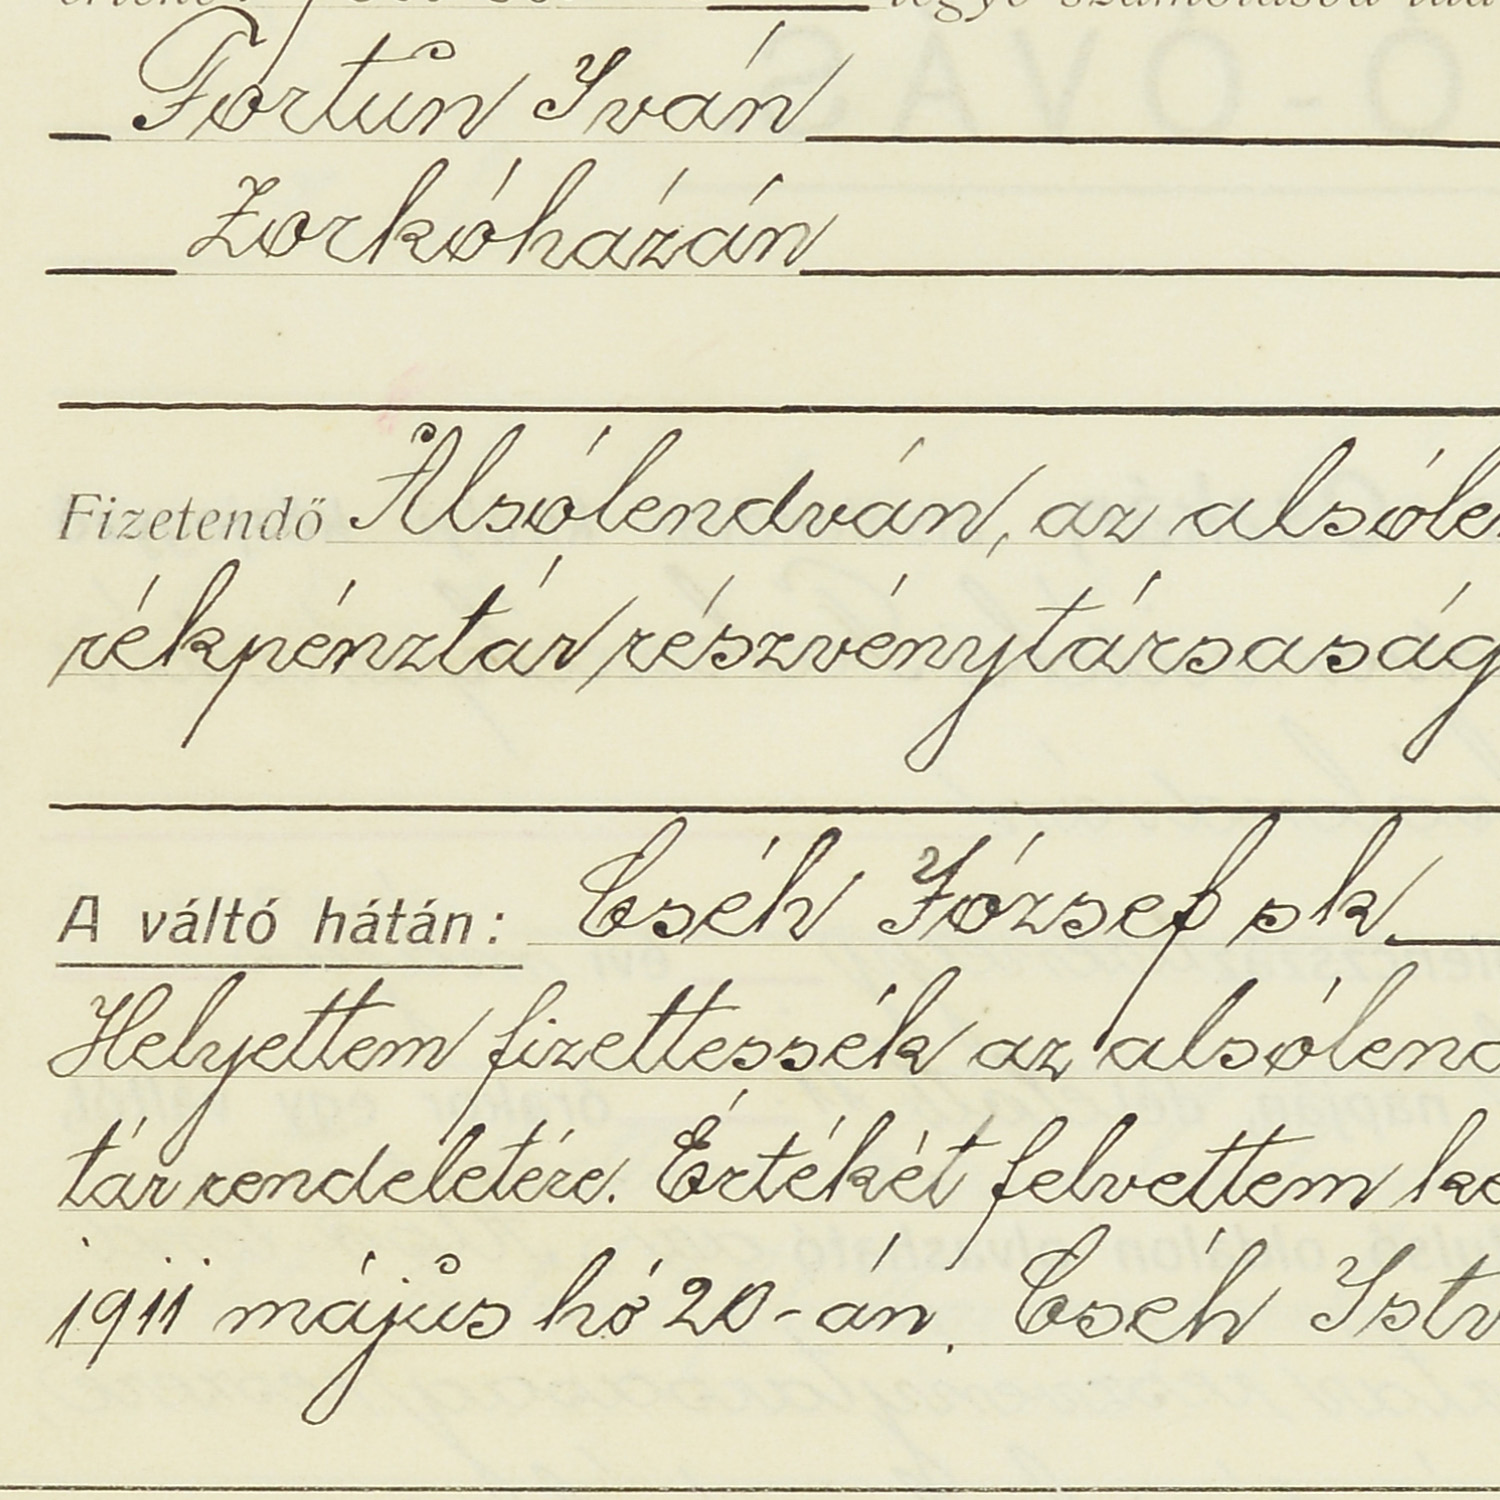 Fortun Iván
Zorkóházán
Fizetendő Alsólendván, az alsóle
rékpénztár részvénytársaság
A váltó hátán: Cséh József sk.
Helyettem fizettessék az alsólend
tár rendeletére. Értékét felvettem ke
1911 május hó 20-án. Cséh Istv